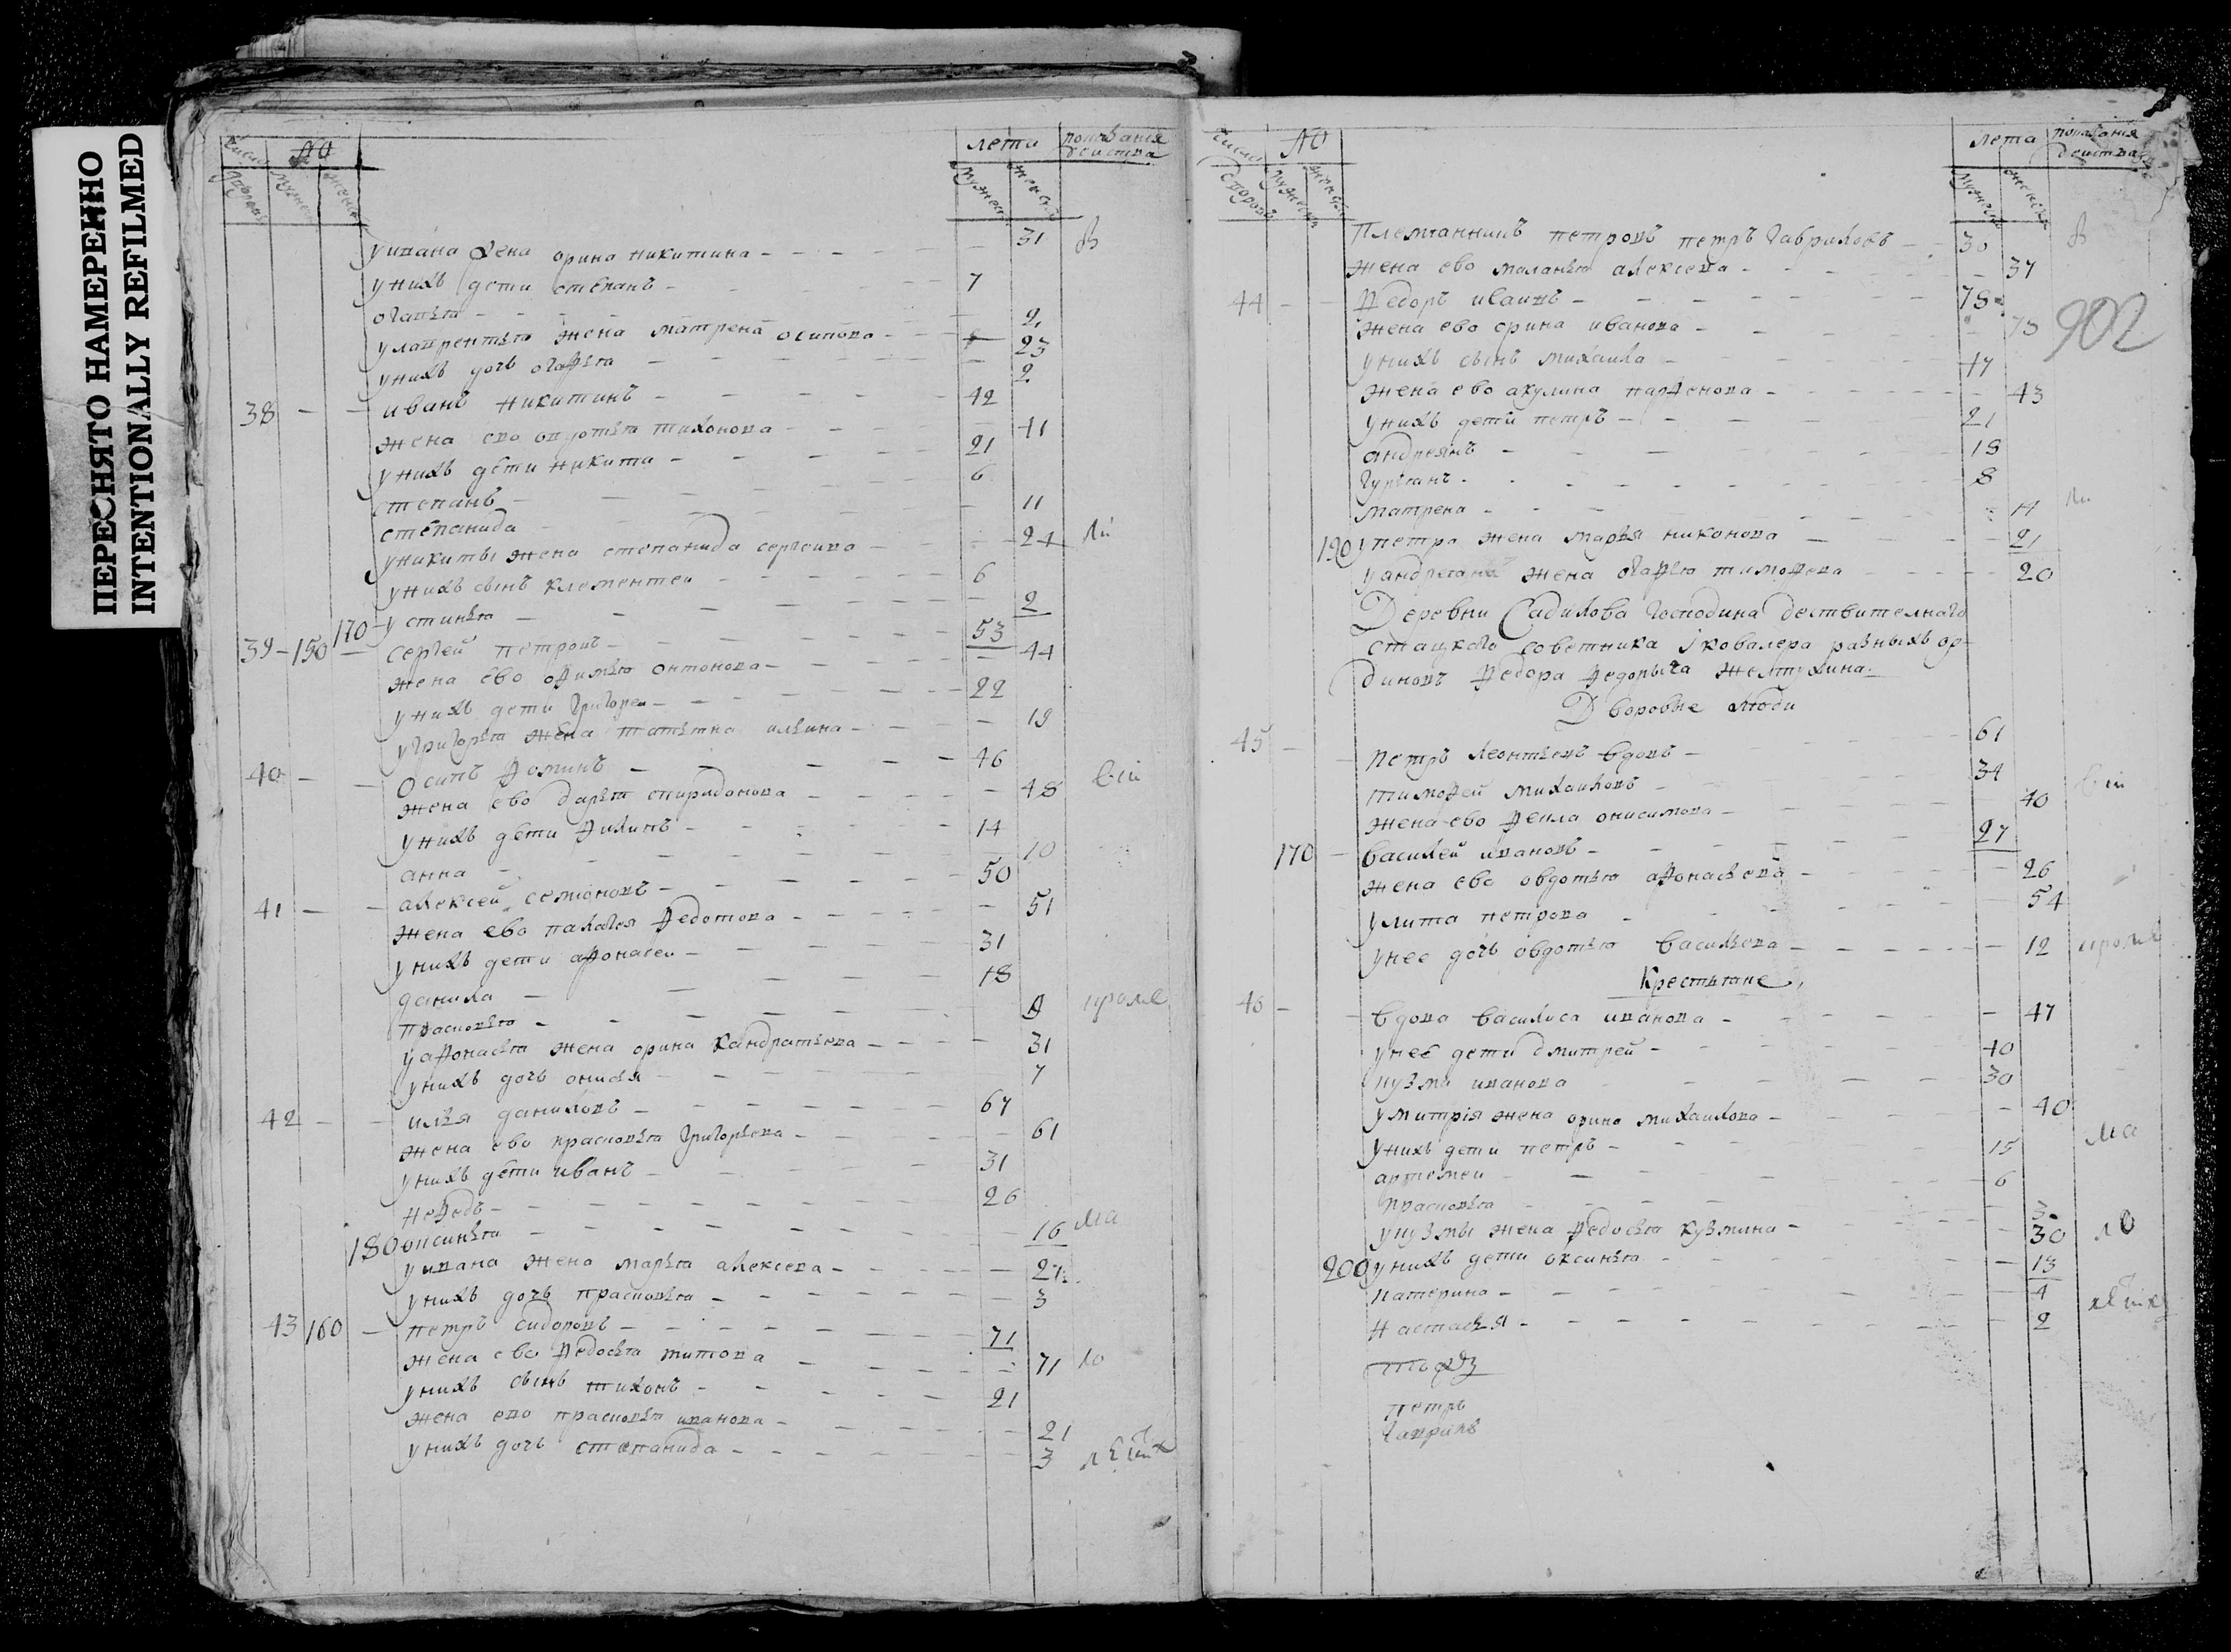 ПЕРЕСНЯТО НАМЕРЕННО
INTENTIONALLY REFILMED
лета
мужеск женска
у ивана жена орина никитина - 31
у нихъ дети степанъ - 7
огапья - 2
у лаврентья жена матрена осипова - 23
у нихъ дочь огафья - 2
38 - иванъ никитинъ - 42
жена ево овдотья тихонова - 41
у нихъ дети никита - 21
степанъ - 6
степанида - 11
у никиты жена степанида сергеива - 24
у нихъ сынъ клементеи - 6
170 устинья - 2
39 - 150 - сергей петровъ - 53
жена ево офимья онтонова - 44
у нихъ дети григореи - 22
у григорья жена татьяна ильина - 19
40 - осипъ фоминъ - 46
жена ево дарья спиридонова - 48
у нихъ дети филипъ - 14
анна - 10
41 - алексей семионовъ - 50
жена ево палагея федотова - 51
у нихъ дети афонасеи - 31
данила - 18
прасковья - 9
у афонасья жена орина кандратьева - 31
у нихъ дочь онисья - 7
42 - илья даниловъ - 67
жена ево прасковья григорьева - 61
у нихъ дети иванъ - 31
нефедъ - 26
180 оксинья - 16
у ивана жена марья алексева - 27
у нихъ дочь прасковья - 3
43 160 - петръ сидоровъ - 71
жена ево федосья титова - 71
у нихъ сынъ тихонъ - 21
жена ево прасковья иванова - 21
у нихъ дочь степанида - 3
число
лета
мужеска женска
племянникъ петровъ петръ гавриловъ - 30
жена ево маланья алексева - 37
44 - федоръ исаивъ - 78
902
жена ево орина иванова - 78
у нихъ сынъ михаила - 47
жена ево акулина парфенова - 43
у нихъ дети петръ - 21
андреянъ - 18
гурьянъ - 8
матрена - 14
190 у петра жена марья никонова - 21
у андреяна жена огафья тимофева - 20
Деревни Садилова господина дествителнаго
стацкого советника i ковалера разныхъ ор-
диновъ федора федорыча желтухина
Дворовые люди
45 - петръ леонтьевъ вдовъ - 61
тимофей михаиловъ - 34
жена ево фекла онисимова - 40
170 - василей ивановъ - 27
жена ево овдотья афонасьева - 26
улита петрова - 54
у нее дочь овдотья васильева - 12
крестьяне
46 - вдова василиса иванова - 47
у нее дети дмитрей - 40
кузма иванова - 30
у митрiя жена орина михаилова - 40
у нихъ дети петръ - 15
артемеи - 6
прасковья - 3
у кузмы жена федосья кузмина - 30
200 у нихъ дети оксинья - 13
катерина - 4
настасья - 2
петръ
гаврилъ